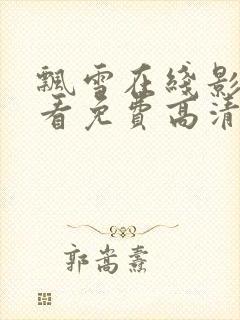 飘雪在线影
看免费高清
郭嵩焘